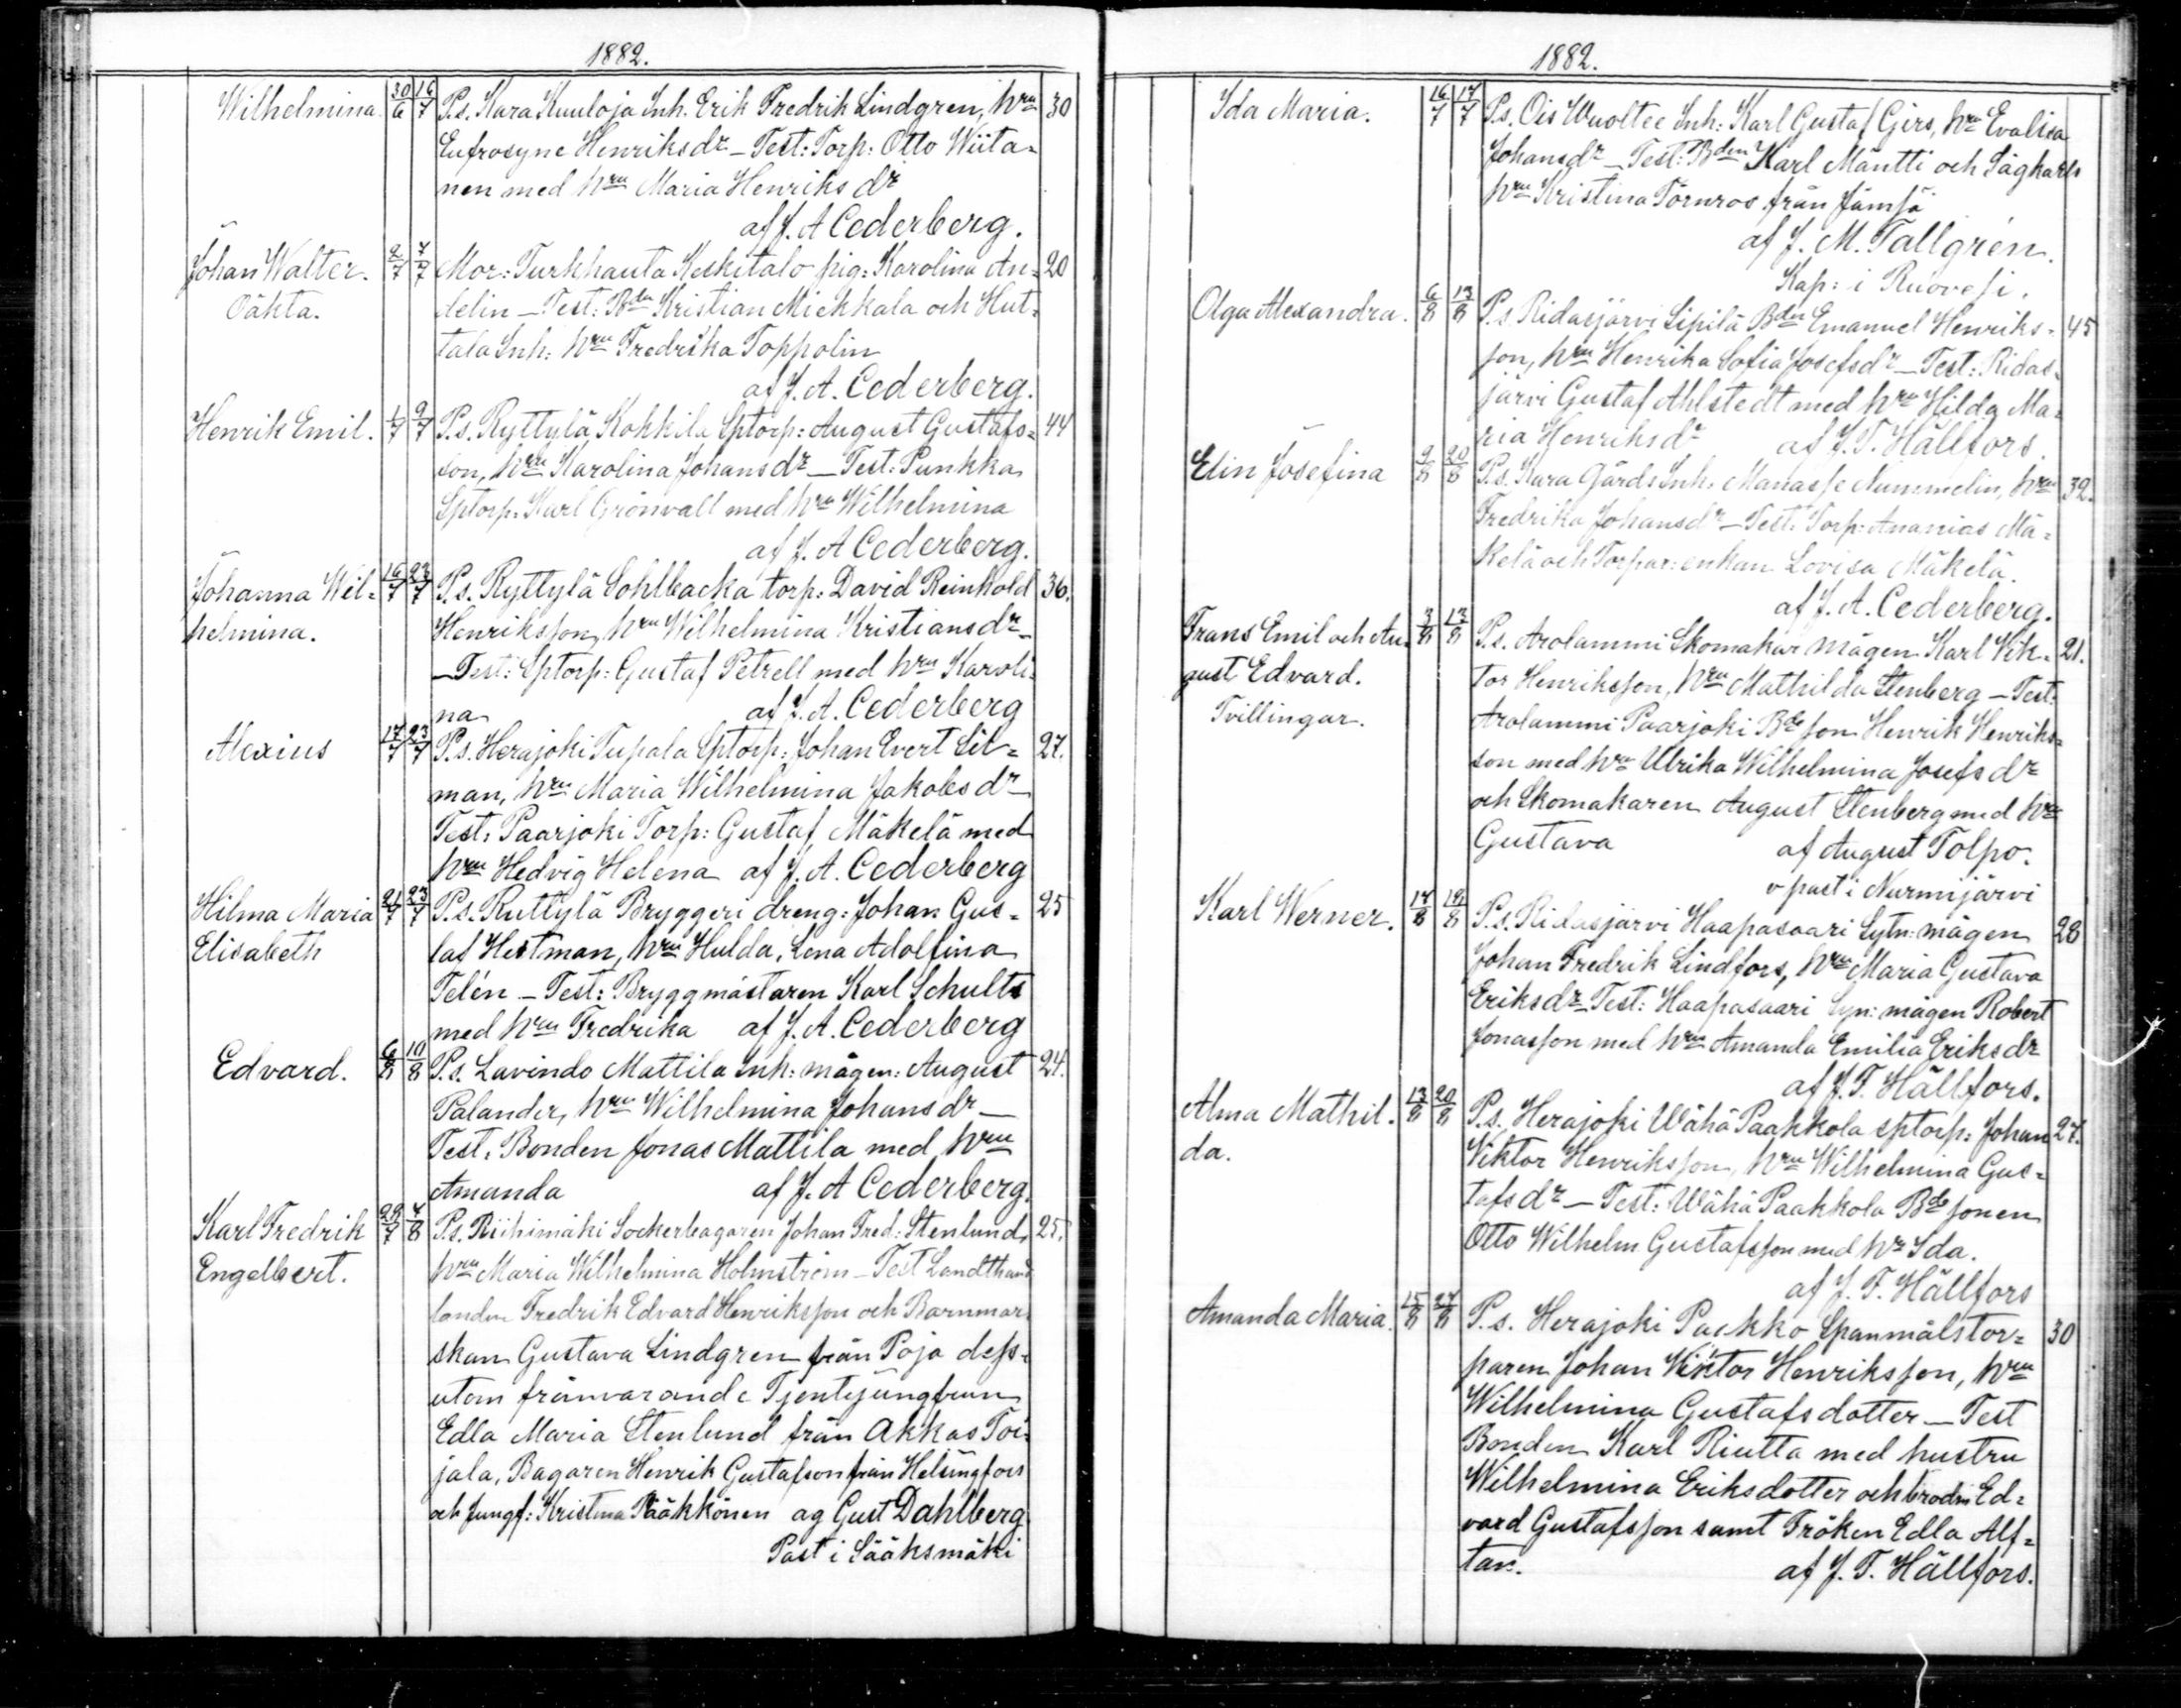 1882.
Wilhelmina 30/6 16/7 P.s. Kara Kuuloja Inh. Erik Fredrik Lindgren, hru 30
Eufrosyne Henriksdr – Test: Torp: Otto Wiita-
nen med hru Maria Henriks dr
af J. A Cederberg.
Johan Walter. 2/7 7/7 Mor: Turkhauta Keskitalo pig: Karolina An- 20
Oäkta. delin – Test: Bdn Kristian Mickkala och Hut-
tala Inh: hru Fredrika Toppolin
af J. A. Cederberg.
Henrik Emil. 1/7 9/7 P.s. Ryttylä Kokkila Sptorp: August Gustafs- 44
son, hru Karolina Johansdr – Test: Punkka
Sptorp: Karl Grönvall med hru Wilhelmina
af J. A Cederberg.
Johanna Wil- 16/7 23/7 P.s. Ryttylä Sohlbacka torp: David Reinhold 36.
helmina. Henriksson, hru Wilhelmina Kristiansdr –
– Test: Sptorp: Gustaf Petrell med hru Karoli-
na af J. A. Cederberg
Alexius 17/7 23/7 P.s. Herajoki Tupala Sptorp: Johan Evert Lit- 27.
man, hru Maria Wilhelmina Jakobs dr
Test: Paarjoki Torp: Gustaf Mäkelä med
hru Hedvig Helena af J. A. Cederberg
Hilma Maria 21/7 23/7 P.s. Ruttylä Bryggeri dreng: Johan Gus- 25
Elisabeth taf Hestman, hru Hulda, Lena Adolfina
Telén – Test: Bryggmästaren Karl Schults
med hru Fredrika af J. A. Cederberg
Edvard. 6/8 10/8 P.s. Lavindo Mattila Inh: mågen: August 24.
Palander, hru Wilhelmina Johans dr –
Test: Bonden Jonas Mattila med hru
Amanda af J. A Cederberg.
Karl Fredrik 29/7 4/8 P.s. Riihimäki Sockerbagaren Johan Fred: Stenlund, 25.
Engelbert. hru Maria Wilhelmina Holmström – Test Landthand
landen Fredrik Edvard Henriksson och Barnmor
skan Gustava Lindgren från Pojo dess-
utom frånvarande Tjentejungfrun
Edla Maria Stenlund från Akkas Toi-
jala, Bagaren Henrik Gustafson från Helsingfors
och Jungf: Kristina Pääkkönen ag Gust Dahlberg
Past i Sääksmäki
1882.
Ida Maria. 16/7 17/7 P.s. Ois Wuoltee Inh: Karl Gustaf Girs, hru Evalisa
Johansdr – Test: Bden Karl Mäntti och Sågkarls
hru Kristina Törnros från Jämsä
af J. M. Tallgrén.
Kap: i Ruovesi.
Olga Alexandra. 6/8 13/8 P.s Ridasjärvi Sipilä Bdn Emanuel Henriks- 45
son, hru Henrika Sofia Josefsdr – Test: Ridas-
järvi Gustaf Ahlstedt med hru Hilda Ma-
ria Henriksdr af J. F. Hällfors.
Elin Josefina 9/8 20/8 P.s. Kara Gårds Inh: Manasse Nummelin, hru 32.
Fredrika Johansdr – Test: Torp: Ananias Mä-
kelä och Torpar: enkan Lovisa Mäkelä.
af J. A. Cederberg.
Frans Emil och Au- 3/8 13/8 P.s. Arolammi Skomakar mågen Karl Vik- 21.
gust Edvard. tor Henriksson, hru Mathilda Stenberg – Test:
Tvillingar. Arolammi Paarjoki Bde son Henrik Henriks-
son med hru Ulrika Wilhelmina Josefs dr
och Skomakaren August Stenberg med hru
Gustava af August Tolpo.
v past i Nurmijärvi
Karl Werner. 14/8 19/8 P.s. Ridasjärvi Haapasaari Sytn: mågen 28
Johan Fredrik Lindfors, hru Maria Gustava
Eriksdr Test: Haapasaari Syn: mågen Robert
Jonasson med hru Amanda Emilia Eriksdr
af J. F. Hällfors.
Alma Mathil- 13/8 20/8 P.s. Herajoki Wähä Paakkola sptorp: Johan 27.
da. Viktor Henriksson, hru Wilhelmina Gus-
tafs dr – Test: Wähä Paakkola Bde sonen
Otto Wilhelm Gustafsson med hr Ida.
af J. F. Hällfors
Amanda Maria. 15/8 27/8 P.s. Herajoki Paekko Spanmålstor- 30
paren Johan Viktor Henriksson, hru
Wilhelmina Gustafsdotter – Test
Bonden Karl Riutta med hustru
Wilhelmina Eriksdotter och brodn Ed-
vard Gustafsson samt Fröken Edla Alf-
tan. af J. F. Hällfors.